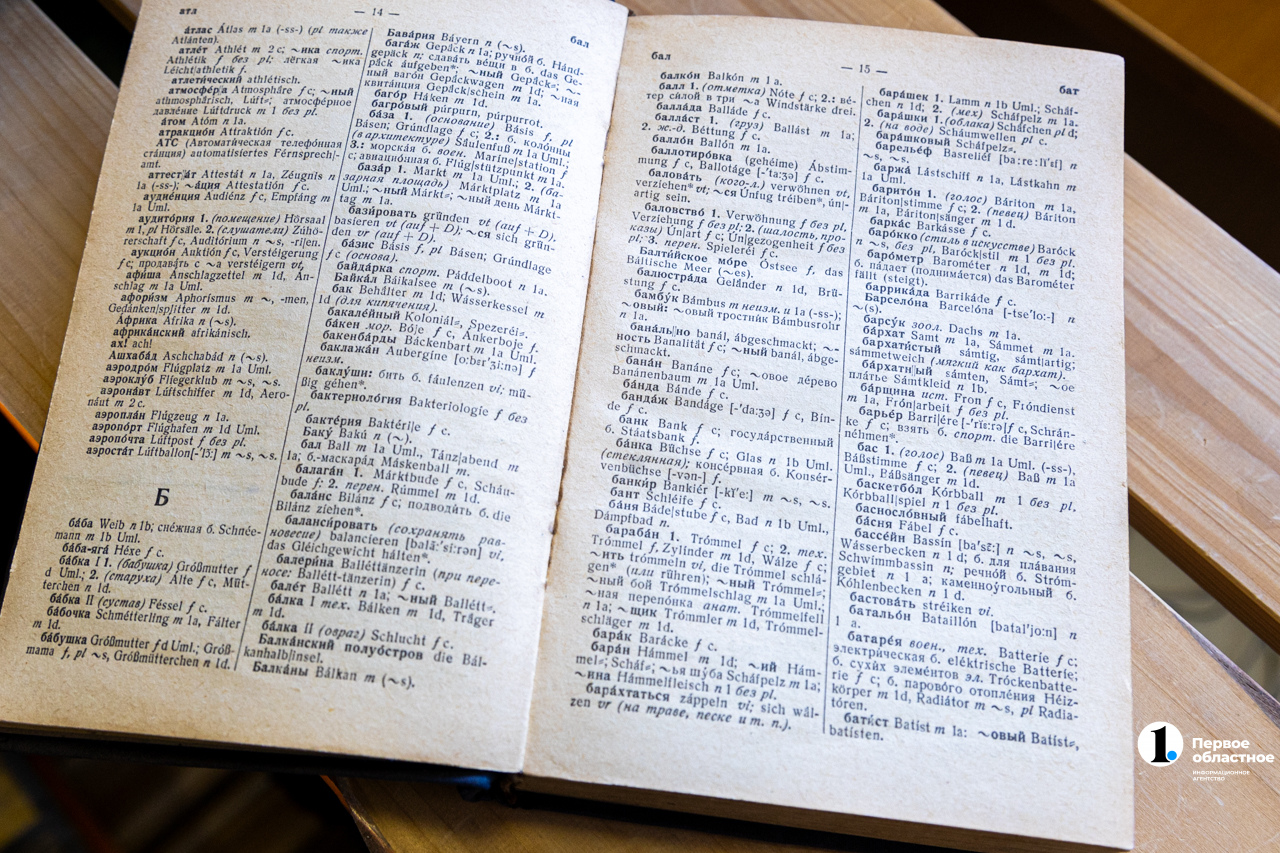 атл
— 14 —
бал
а́тлас Átlas m 1a (-ss-) (pl также
Atlánten).
атле́т Athlét m 2 c; ~ика спорт.
Athlétik f без pl; лёгкая ~ика
Léicht|athletik f.
атлети́ческий athlétisch.
атмосфе́р|а Atmosphäre f c; ~ный
athmosphärisch, Lúft=; атмосфе́рное
давле́ние Lúftdruck m 1 без pl.
а́том Atóm n 1a.
атракцио́н Attraktión f c.
АТС (Автомати́ческая телефо́нная
ста́нция) automatisiertes Férnsprech|-
amt.
аттест|а́т Attestát n 1a, Zéugnis n
1a (-ss-); ~а́ция Attestatión f c.
аудие́нция Audiénz f c, Empfáng m
1a Uml.
аудито́рия 1. (помещение) Hörsaal
m 1, pl Hörsäle. 2. (слушатели) Zúhö-
rerschaft f c, Auditórium n ~s, -ri|en.
аукцио́н Auktión f c, Verstéigerung
f c; продава́ть с ~а verstéigern vt.
афи́ша Anschlagzettel m 1d, An-
schlag m 1a Uml.
афори́зм Aphorísmus m ~, -men,
Gedánken|splitter m 1d.
А́фрика Áfrika n (~s).
африка́нский afrikánisch.
ах! ach!
Ашхаба́д Aschchabád n (~s).
аэродро́м Flúgplatz m 1a Uml.
аэроклу́б Flíegerklub m ~s, ~s.
аэрона́вт Lúftschiffer m 1d, Aero-
náut m 2 c.
аэропла́н Flúgzeug n 1a.
аэропо́рт Flúghafen m 1d Uml.
аэропо́чта Lúftpost f без pl.
аэроста́т Lúftballon[-'lɔ̃:] m ~s, ~s.
Б
ба́ба Weib n 1b; сне́жная б. Schnée-
mann m 1b Uml.
ба́ба-яга́ Héxe f c.
ба́бка I 1. (бабушка) Gróßmutter f
d Uml.; 2. (старуха) Álte f c, Müt-
terchen n 1d.
ба́бка II (сустав) Féssel f c.
ба́бочка Schmétterling m 1a, Fálter
m 1d.
ба́бушка Gróßmutter f d Uml.; Gróß-
mama f, pl ~s, Gróßmütterchen n 1d.
Бава́рия Báyern n (~s).
бага́ж Gepäck n 1a; ручно́й б. Hánd-
gepäck n; сдава́ть ве́щи в б. das Ge-
päck áufgeben*; ~ный Gepäck=; ~-
ный ваго́н Gepäckwagen m 1d; ~ная
квита́нция Gepäck|schein m 1a.
баго́р Háken m 1d.
багро́вый púrpurn, púrpurrot.
ба́за 1. (основание) Básis f, pl
Básen; Grúndlage f c; 2.: б. коло́нны
(в архитектуре) Säulenfuß m 1a Uml.;
3.: морска́я б. воен. Marine|station f
c; авиацио́нная б. Flúg|stützpunkt m 1a.
база́р 1. Markt m 1a Uml.; 2. (ба-
зарная площадь) Márktplatz m 1a
Uml.; ~ный Márkt=; ~ный день Márkt-
tag m 1a.
бази́ровать gründen vt (auf + D);
basieren vt (auf + D); ~ся sich grün-
den vr (auf + D).
ба́зис Básis f, pl Básen; Grúndlage
f c (основа).
байда́рка спорт. Páddelboot n 1a.
Байка́л Báikalsee m (~s).
бак Behälter m 1d; Wásserkessel m
1d (для кипячения).
бакале́йный Koloniál=, Spezeréi=.
ба́кен мор. Bóje f c, Ánkerboje f.
бакенба́рды Báckenbart m 1a Uml.
баклажа́н Aubergine [o:bɛr'ʒi:nə] f
неизм.
баклу́ши: бить б. fáulenzen vi; mü-
ßig géhen*.
бактериоло́гия Bakteriologíe f без
pl.
бакте́рия Baktéri|e f c.
Баку́ Bakú n (~).
бал Ball m 1a Uml., Tánz|abend m
1a; б.-маскара́д Máskenball m.
балага́н 1. Márktbude f c, Scháu-
bude f; 2. перен. Rúmmel m 1d.
бала́нс Bilánz f c; подводи́ть б. die
Bilánz ziehen*.
баланси́ровать (сохранять рав-
новесие) balancieren [balã:'si:rən] vi,
das Gléichgewicht hálten*.
балери́на Balléttänzerin (при пере-
носе: Ballétt-tänzerin) f c.
бале́т Ballétt n 1a; ~ный Ballétt=.
ба́лка I тех. Bálken m 1d, Träger
m 1d.
ба́лка II (овраг) Schlucht f c.
Балка́нский полуо́стров die Bál-
kanhalb|insel.
Балка́ны Bálkan m (~s).
бал
— 15 —
бат
балко́н Balkón m 1 a.
балл 1. (отметка) Nóte f c; 2.: ве́-
тер си́лой в три ~а Windstärke drei.
балла́да Balláde f c.
балла́ст 1. (груз) Ballást m 1a;
2. ж.-д. Béttung f c.
балло́н Ballón m 1a.
баллотиро́вка (geheime) Ábstim-
mung f c, Ballotáge [-'ta:ʒə] f c.
балова́ть (кого-л.) verwöhnen vt,
verziehen* vt; ~ся Únfug tréiben*, ún|-
artig sein.
баловство́ 1. Verwöhnung f без pl,
Verziehung f без pl; 2. (шалость, про-
казы) Ún|art f c; Ún|gezogenheit f без
pl; 3. перен. Spieleréi f c.
Балти́йское мо́ре Óstsee f, das
Báltische Meer (~es).
балюстра́да Geländer n 1d, Brü-
stung f c.
бамбу́к Bámbus m неизм. и 1a (-ss-);
~овый: ~овый тростни́к Bámbusrohr
n 1a.
бана́ль|но banál, ábgeschmackt; ~-
ность Banalität f c; ~ный banál, ábge-
schmackt.
бана́н Banáne f c; ~овое де́рево
Banánenbaum m 1a Uml.
ба́нда Bánde f c.
банда́ж Bandáge [-'da:ʒə] f c, Bín-
de f c.
банк Bank f c; госуда́рственный
б. Stáatsbank f.
ба́нка Büchse f c; Glas n 1b Uml.
(стеклянная); консе́рвная б. Konsér-
venbüchse [-vən-] f.
банки́р Bankiér [-kĭ'e:] m ~s, ~s.
бант Schléife f c.
ба́ня Báde|stube f c, Bad n 1b Uml.,
Dámpfbad n.
бараба́н 1. Trómmel f c; 2. тех.
Trómmel f, Zylínder m 1d, Wálze f c;
~ить trómmeln vi, die Trómmel schlá-
gen* (или rühren); ~ный Trómmel=;
~ный бой Trómmelschlag m 1a Uml.;
~ная перепо́нка анат. Trómmelfell
n 1a; ~щик Trómmler m 1d, Trómmel-
schläger m 1d.
бара́к Barácke f c.
бара́н Hámmel m 1d; ~ий Hám-
mel=; Schaf=; ~ья шу́ба Scháfpelz m 1a;
~ина Hámmelfleisch n 1 без pl.
бара́хтаться záppeln vi; sich wäl-
zen vr (на траве, песке и т. п.).
бара́шек 1. Lamm n 1b Uml.; Scháf-
chen n 1d; 2. (мех) Scháfpelz m 1a.
бара́шки 1. (облака) Schäfchen pl d;
2. (на воде) Scháumwellen pl c.
бара́шковый Scháfpelz=.
барелье́ф Basrelief [ba:re:lĭ'ɛf] n
~s, ~s.
баржа́ Lástschiff n 1a, Lástkahn m
1a Uml.
барито́н 1. (голос) Báriton m 1a,
Báriton|stimme f c; 2. (певец) Báriton
m 1a, Báriton|sänger m 1 d.
барка́с Barkásse f c.
баро́кко (стиль в искусстве) Baróck
n ~s, без pl, Baróck|stil m 1 без pl.
баро́метр Barométer n 1d, m 1d;
б. па́дает (поднима́ется) das Barométer
fällt (steigt).
баррика́да Barrikáde f c.
Барсело́на Barcelóna [-tse'lo:-] n
~(s).
барсу́к зоол. Dachs m 1a.
ба́рхат Samt m 1a, Sámmet m 1a.
бархати́стый sámtig, sámtartig;
sámmetweich (мягкий как бархат).
ба́рхатн|ый sámten, Sámt=; ~ое
пла́тье Sámtkleid n 1b.
ба́рщина ист. Fron f c, Fróndienst
m 1a, Frón|arbeit f без pl.
барье́р Barri|ére [-'rĭɛ:rə] f c, Schrán-
ke f c; взять б. спорт. die Barri|ére
néhmen*.
бас 1. (голос) Baß m 1a Uml. (-ss-),
Báßstimme f c; 2. (певец) Baß m 1a
Uml., Báßsänger m 1d.
баскетбо́л Kórbball m 1 без pl.
Kórbball|spiel n 1 без pl.
басносло́вный fábelhaft.
ба́сня Fábel f c.
бассе́йн Bassin [ba'sɛ̃:] n ~s, ~s,
Wásserbecken n 1 d; б. для пла́вания
Schwimmbassin n; речно́й б. Stróm-
gebiet n 1 a; каменноу́гольный б.
Kóhlenbecken n 1 d.
бастова́ть stréiken vi.
батальо́н Bataillón [batal'jo:n] n
1 a.
батаре́я воен., тех. Batteríe f c;
электри́ческая б. eléktrische Batteríe;
б. сухи́х элеме́нтов эл. Tróckenbatte-
ríe f c; б. парово́го отопле́ния Héiz-
körper m 1d, Radiátor m ~s, pl Radia-
tóren.
бати́ст Batíst m 1a: ~овый Batíst=,
batísten.
1.
Первое
областное
ИНФОРМАЦИОННОЕ
АГЕНТСТВО